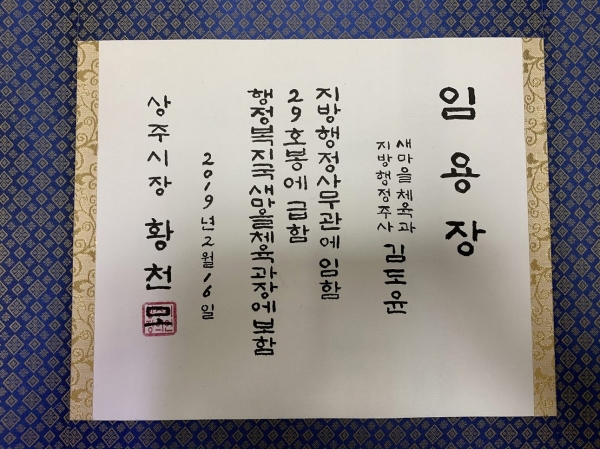 임용장
새마을체육과
지방행정주사 김도윤
지방행정사무관에 임함
29호봉에 급함
행정복지국 새마을체육과장에 보함
2019년 2월 16일
상주시장 황천모